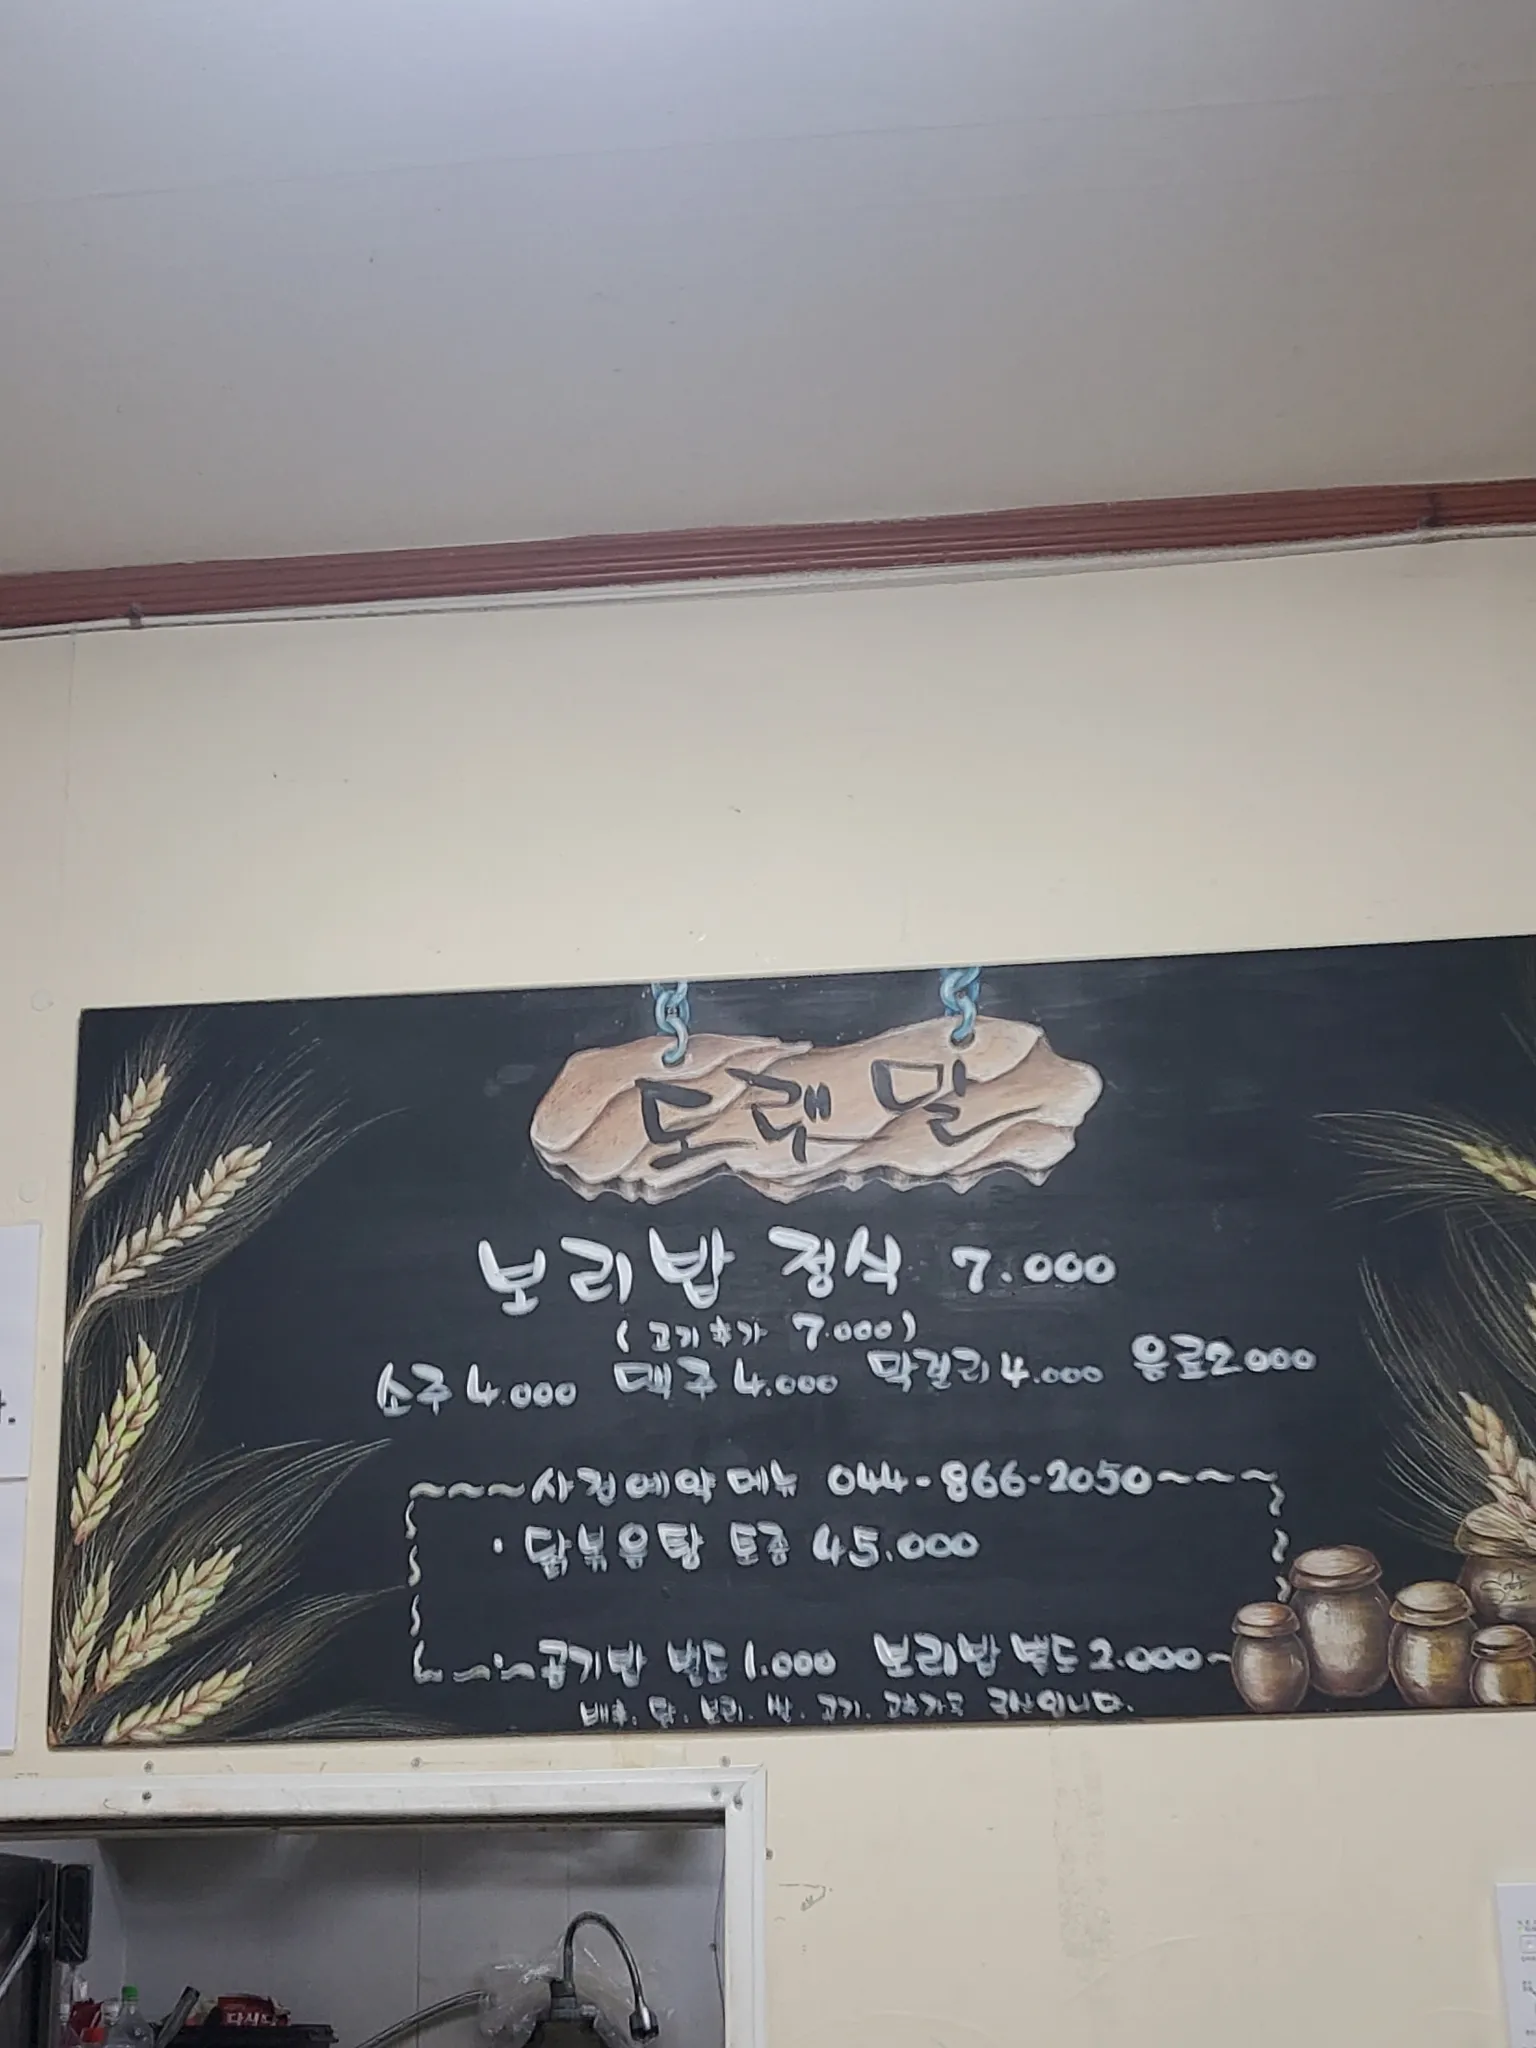 도랫말
보리밥 정식 7.000
(고기추가 7.000)
소주 4.000 맥주 4.000 막걸리 4.000 음료 2000
사전예약 메뉴 044-866-2050
· 닭볶음탕 토종 45.000
공기밥 별도 1.000 보리밥 별도 2.000
배추. 닭. 보리. 쌀. 고기. 고추가루 국산입니다.